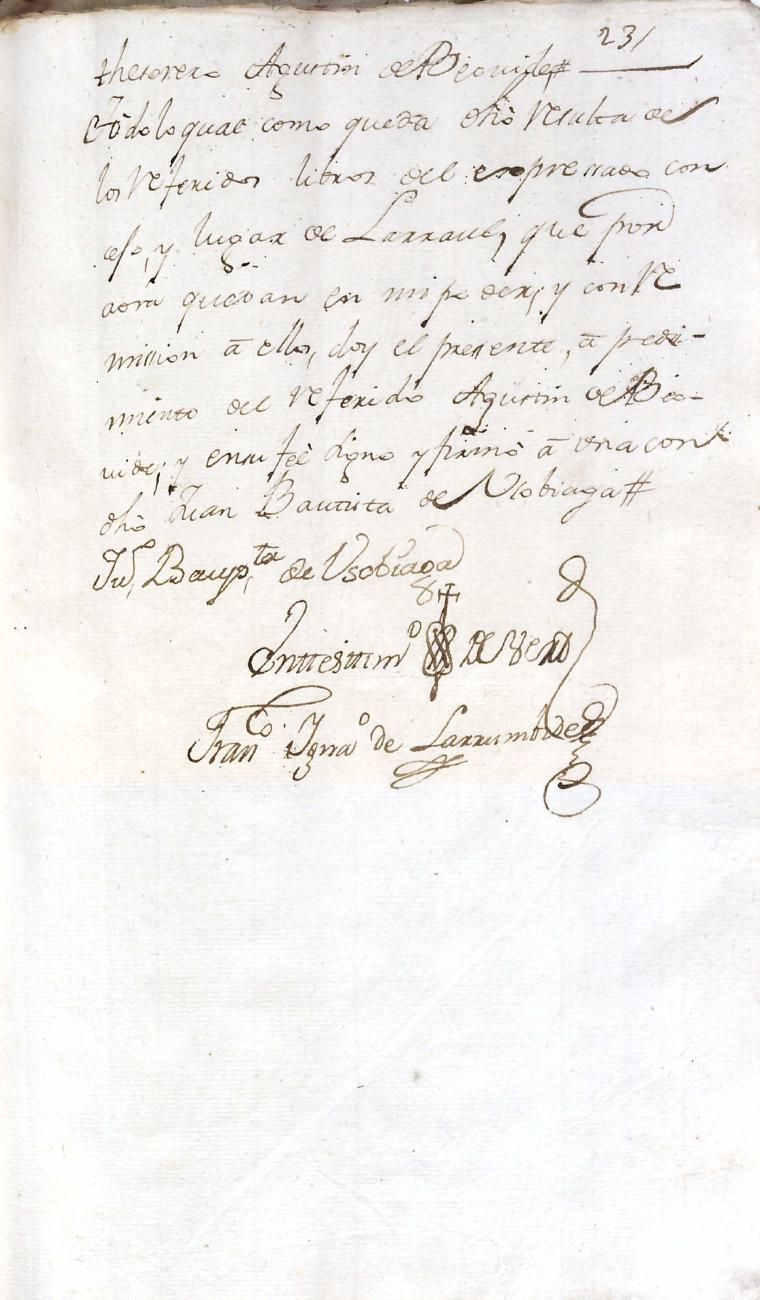 231
thesorero Agustin de Beovide#
Todo lo qual como queda dho resulta de
los referidos libros del expresado con
cejo, y lugar de Larraul, que por
aora quedan en mi poder, y con re
mision á ello, doy el presente, á pedi-
miento del referido Agustin de Beo-
vide; y en su feé signo y firmo á una con
dho Juan Bautista de Usobiaga#
Jun Baup.ta de Usobiaga
En testim.o de verd
Fran.co Ygna.o de Larrumbide